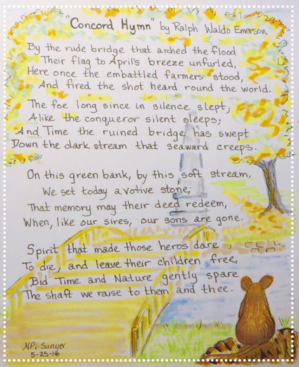 "Concord Hymn" by Ralph Waldo Emerson
By the rude bridge that arched the flood
Their flag to April's breeze unfurled,
Here once the embattled farmers stood,
And fired the shot heard round the world.
The foe long since in silence slept,
Alike the conqueror silent sleeps;
And Time the ruined bridge has swept
Down the dark stream that seaward creeps.
On this green bank, by this soft stream,
We set today a votive stone;
That memory may their deed redeem,
When, like our sires, our sons are gone.
Spirit that made those heros dare
To die, and leave their children free,
Bid Time and Nature gently spare
The shaft we raise to them and thee.
5-25-16